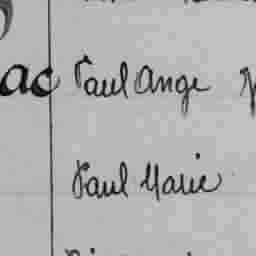 ac Paul Ange
Paul Marie